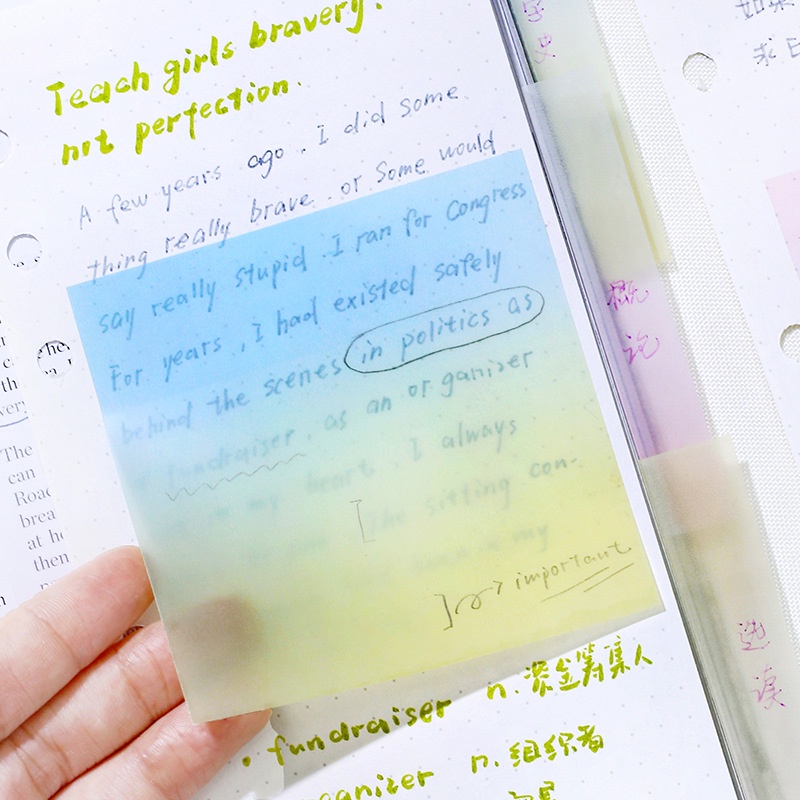 Teach girls bravery.
not perfection.
A few years ago. I did some
thing really brave. or some would
say really stupid. I ran for Congress
For years, I had existed safely
behind the scenes in politics as
fundraiser, as an organizer
in my heart, I always
the sitting con-
in my
important
• fundraiser n. 资金筹集人
organizer n. 组织者
The
can
brea
at
then
史
概
论
选
读
如果
求